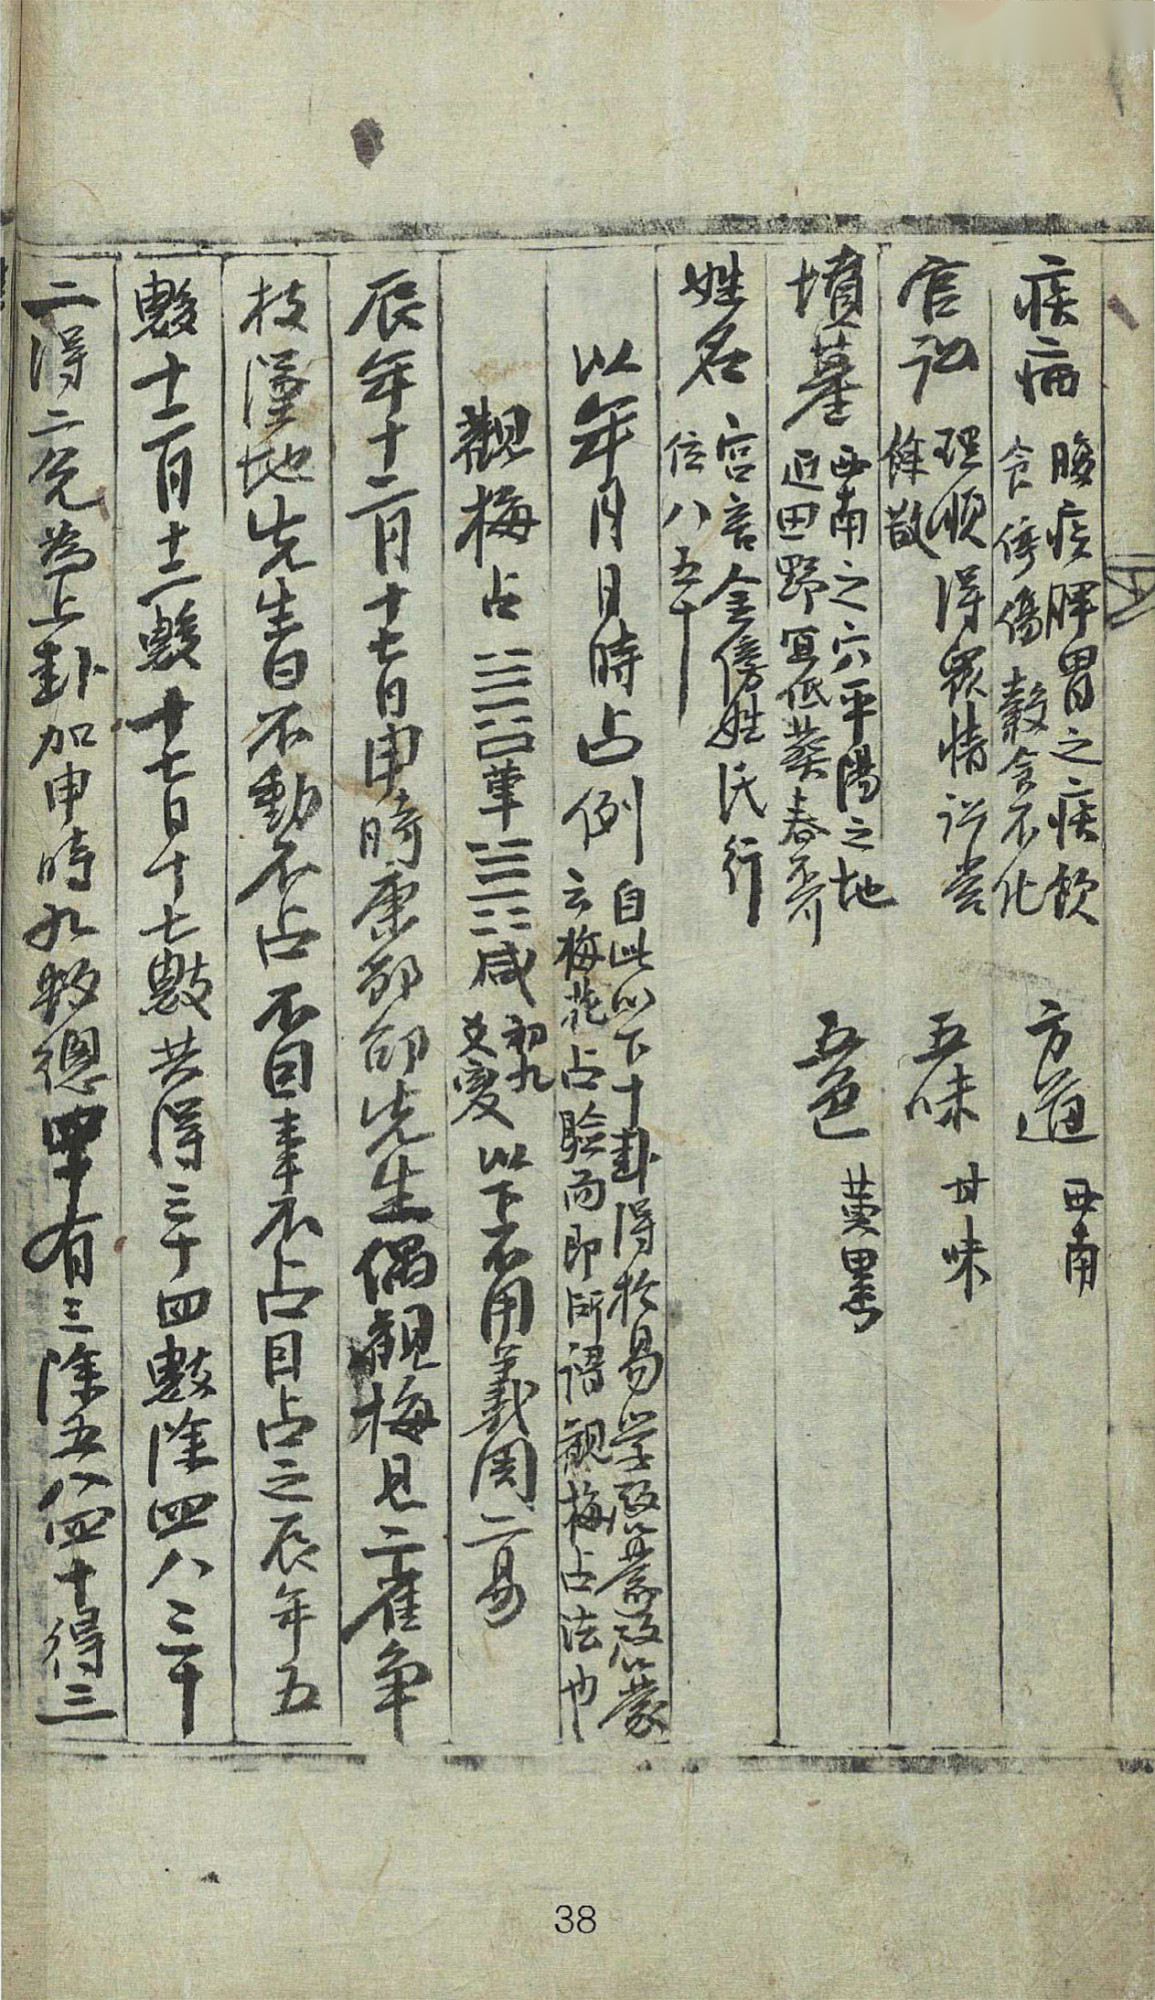 疾病 腹疾脾胃之疾飲
食停傷穀食不化 方道 西南
官訟 理順得衆情訟當
解散 五味 甘味
墳墓 西南之穴平陽之地
近田野宜低葬春不可 五色 黄黑
姓名 宮音金傍姓氏行
位八五十
以年月日時占例 自此以下十卦得於易學啓蒙啓蒙
云梅花占驗而即所謂觀梅占法也
觀梅占 革 咸 初九
爻変 以下不用羲周二易
辰年十二月十七日申時康節邵先生偶觀梅見二雀争
枝墜地先生曰不動不占不因事不占因占之辰年五
數十二月十二數十七日十七數共得三十四數除四八三十
二得二兌為上卦加申時九數總四十有三除五八四十得三
38